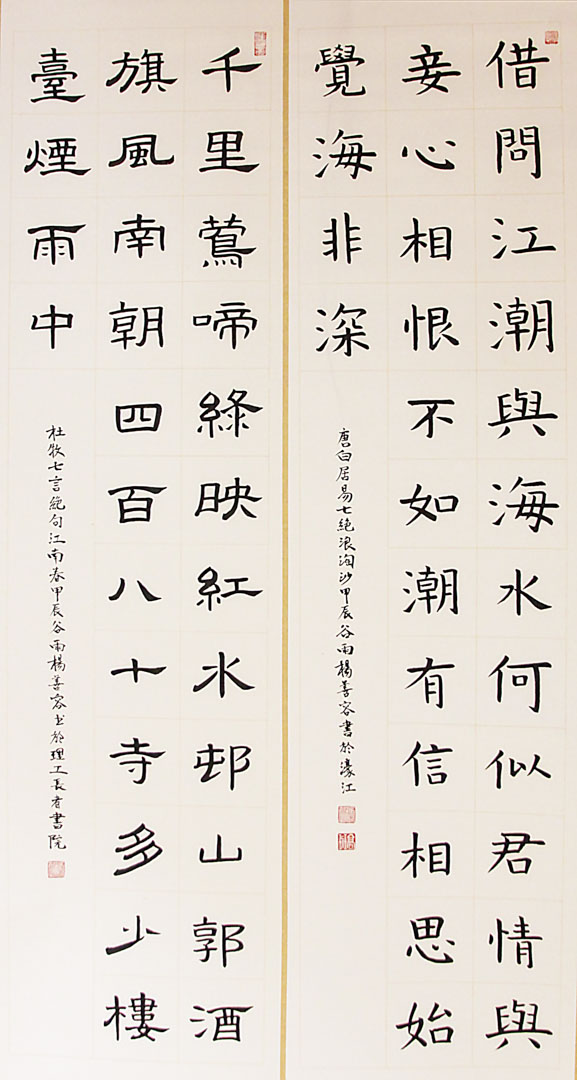 借問江潮與海水何似君情與
妾心相恨不如潮有信相思始
覺海非深
唐白居易七絕浪淘沙甲辰谷雨楊善容書於濠江
千里鶯啼綠映紅水邨山郭酒
旗風南朝四百八十寺多少樓
臺煙雨中
杜牧七言絕句江南春甲辰谷雨楊善容书於理工長者書院